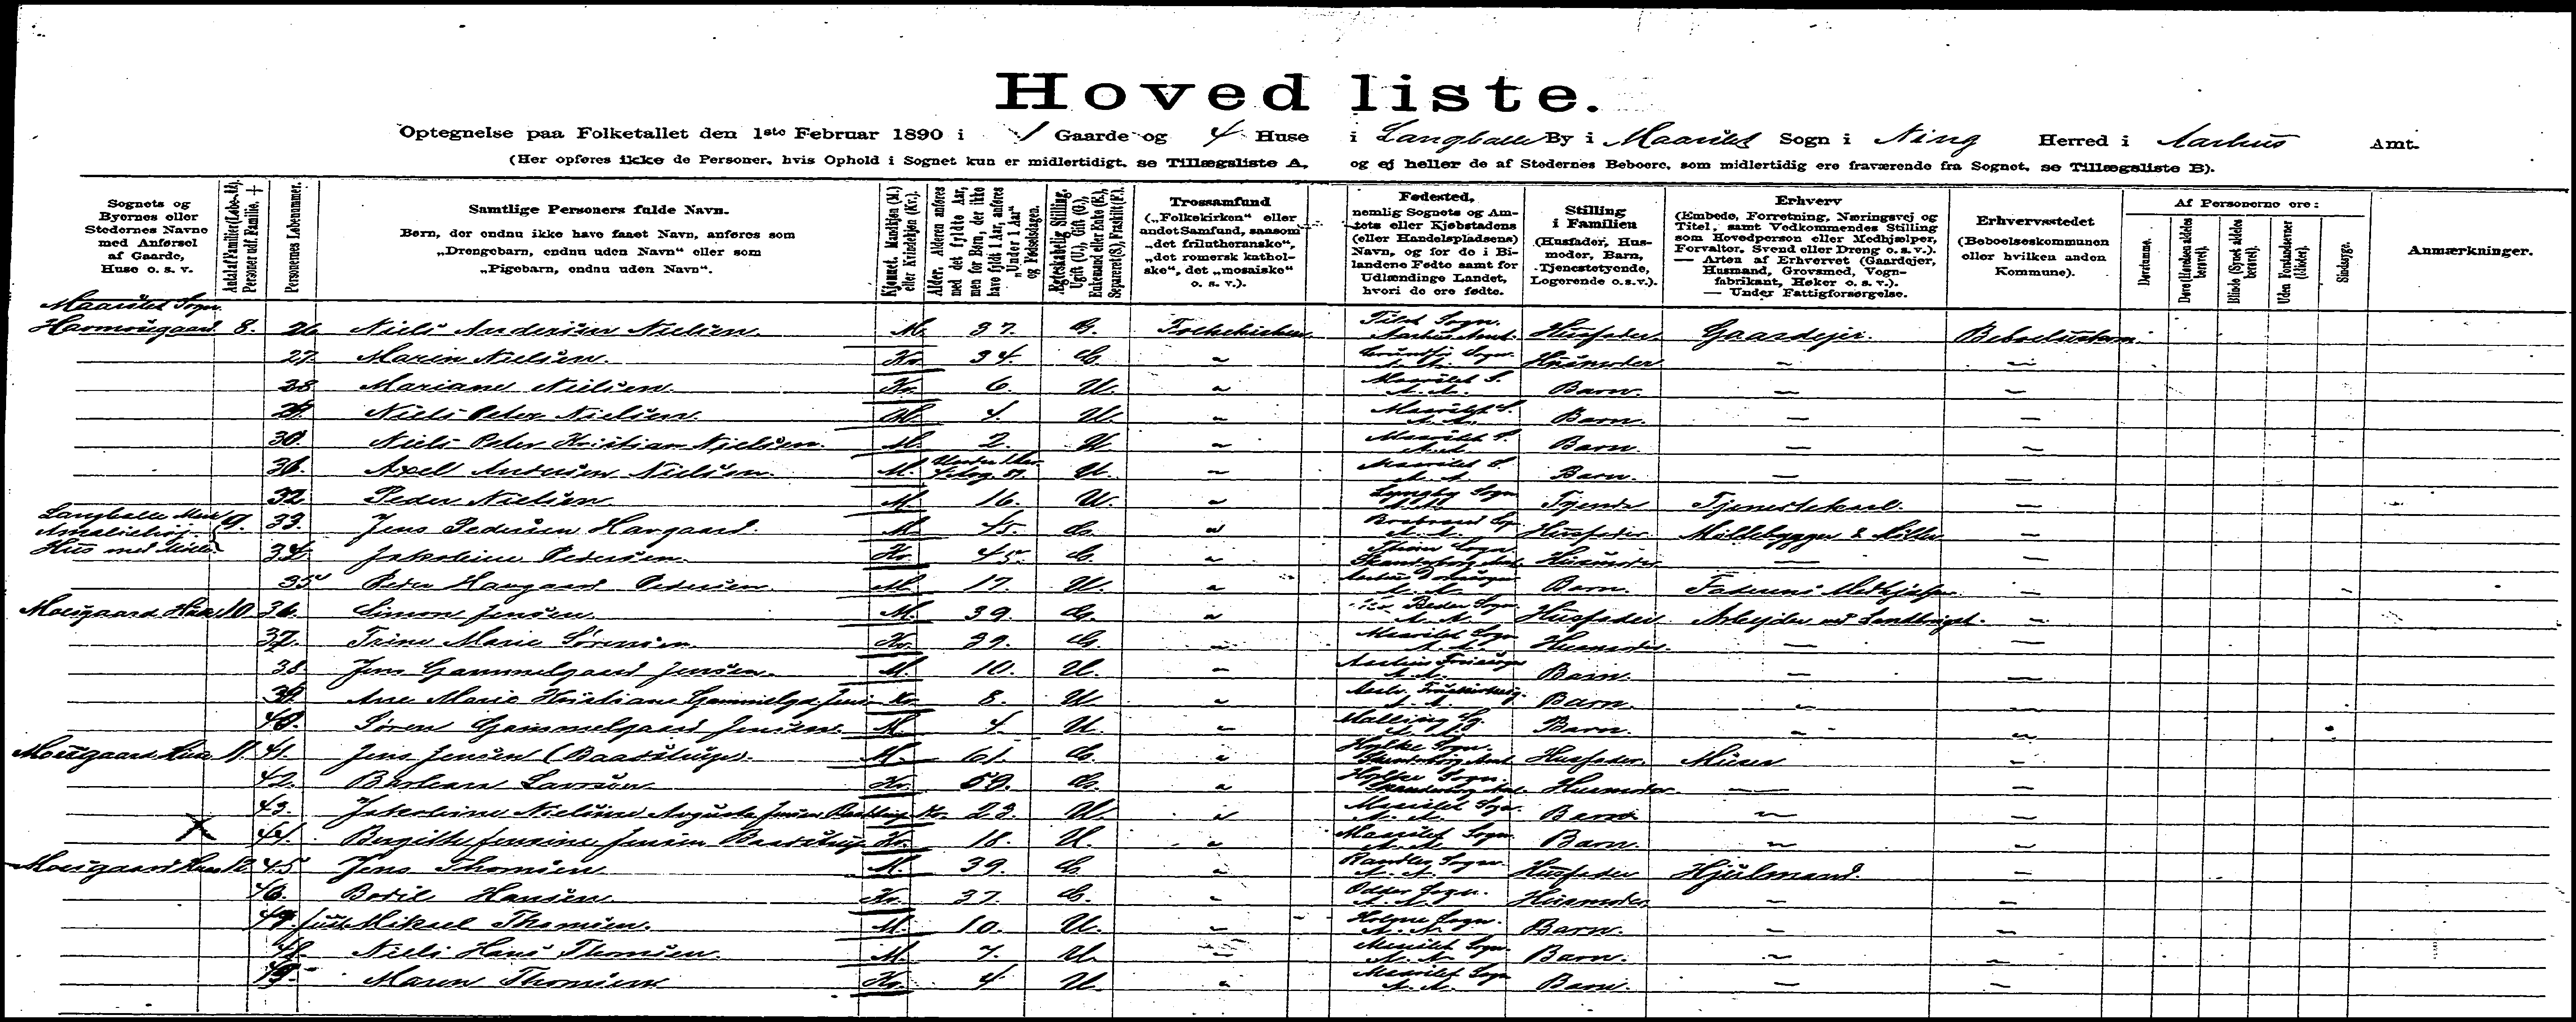 Hovedliste.
Optegnelse paa Folketallet den 1ste Februar 1890 i 1 Gaarde og 4 Huse i Langballe By i Maarslet Sogn i Ning Herred i Aarhus Amt.
(Her opføres ikke de Personer, hvis Ophold i Sognet kun er midlertidigt, se Tillægsliste A, og ej heller de af Stedernes Beboere, som midlertidig ere fraværende fra Sognet, se Tillægsliste B).
Sognets og Byernes eller Stedernes Navne med Anførsel af Gaarde, Huse o. s. v.
Personernes Løbenummer.
Samtlige Personers fulde Navn.
Børn, der endnu ikke have faaet Navn, anføres som „Drengebarn, endnu uden Navn“ eller som „Pigebarn, endnu uden Navn“.
Kjønnet. Mandkjøn (M.) eller Kvindekjøn (Kv.).
Alder. Alderen anføres med det fyldte Aar, men for Børn, der ikke have fyldt 1 Aar, anføres „Under 1 Aar“ og Fødselsdagen.
Ægteskabelig Stilling. Ugift (U.), Gift (G.), Enkemand eller Enke (E.), Separeret (S.), Fraskilt (F.).
Trossamfund („Folkekirken“ eller andet Samfund, saasom „det frilutheranske“, „det romersk katholske“, det „mosaiske“ o. s. v.).
Fødested, nemlig Sognets og Amtets eller Kjøbstadens (eller Handelspladsens) Navn, og for de i Bilandene Fødte samt for Udlændinge Landet, hvori de ere fødte.
Stilling i Familien (Husfader, Husmoder, Barn, Tjenestetyende, Logerende o.s.v.).
Erhverv (Embede, Forretning, Næringsvej og Titel, samt Vedkommendes Stilling som Hovedperson eller Medhjælper, Forvalter, Svend eller Dreng o. s. v.). — Arten af Erhvervet (Gaardejer, Husmand, Grovsmed, Vognfabrikant, Høker o. s. v.). — Under Fattigforsørgelse.
Erhvervsstedet (Beboelseskommunen eller hvilken anden Kommune).
Af Personerne ere:
Døvstumme.
Døve (Hørelsen aldeles berøvet).
Blinde (Synet aldeles berøvet).
Uden Forstandsevner (Idioter).
Sindssyge.
Anmærkninger.
Maarslet Sogn.
8. 26 Niels Andersen Nielsen. M. 37. G. Folkekirken Tiset Sogn. Aarhus Amt. Husfader. Gaardejer.
27. Maren Nielsen. Kv. 34. G. " Husmoder — —
28 Mariane Nielsen. Kv. 6. U. " Maarslet S. A. A. Barn. — —
29. Niels Peter Nielsen. M. 4. U. " Maarslet S. A. A. Barn. — —
30. Niels Peter Kristian Nielsen. M. 2. U. " Maarslet S. A. A. Barn. — —
31. Axel Andersen Nielsen M. Under 1 Aar U. " Maarslet S. A. A. Barn. — —
32 Peder Nielsen M. 16. U. " Lyngby Sogn A. A. Tjenestekarl. —
Langballe
9. 33. Jens Pedersen Havgaard. M. 45. G. " Brabrand Sg. A. A. Husfader Møllebygger & Møller —
34. Jakobine Pedersen Kv. 45. G. " Sogn Skanderborg Amt Husmoder — —
35 Peder Havgaard Pedersen M. 17. U. " Aarhus A. A. Barn. Faderens Medhjælper —
Moesgaard Huse 10. 36. Simon Jensen M. 39. G. " Beder Sogn A. A. Husfader —
37. Trine Marie Sørensen Kv. 39. G. " Maarslet Sogn A. A. Husmoder. — —
38. Jens Gammelgaard Jensen. M. 10. U. " Aarhus A. A. Barn. — —
39. Ane Marie Kristiane Kv. 8. U. " A. A. Barn. — —
40. Søren Gammelgaard Jensen M. 4. U. " Malling Sg. A. A. Barn. — —
Moesgaard Huse 11. 41. Jens Jensen (Baastrup). M. 61. G. " Hylke Sogn. Skanderborg Amt Husfader. Murer —
42. Kv. 59. G. " Hylke Sogn. Skanderborg Amt. Husmoder. — —
43. Jakobine Nielsine Augusta Jensen Baastrup Kv. 23. U. " Maarslet Sogn. A. A. Barn — —
44. Birgitte Jensine Jensen Baastrup Kv. 18. U. " Maarslet Sogn. A. A. Barn. — —
Moesgaard Huse 12. 45 Jens Thomsen M. 39. G. " Randlev Sogn. A. A. Husfader Hjulmand. —
46. Bodil Hansen Kv. 37. G. " Odder Sogn. A. A. Husmoder — —
47. Mikael Thomsen. M. 10. U. " Holme Sogn. A. A. Barn. — —
48. Niels Hans Thomsen. M. 7. U. " Maarslet Sogn. A. A. Barn. — —
49. Maren Thomsen Kv. 4 U. " Maarslet Sogn A. A. Barn. — —